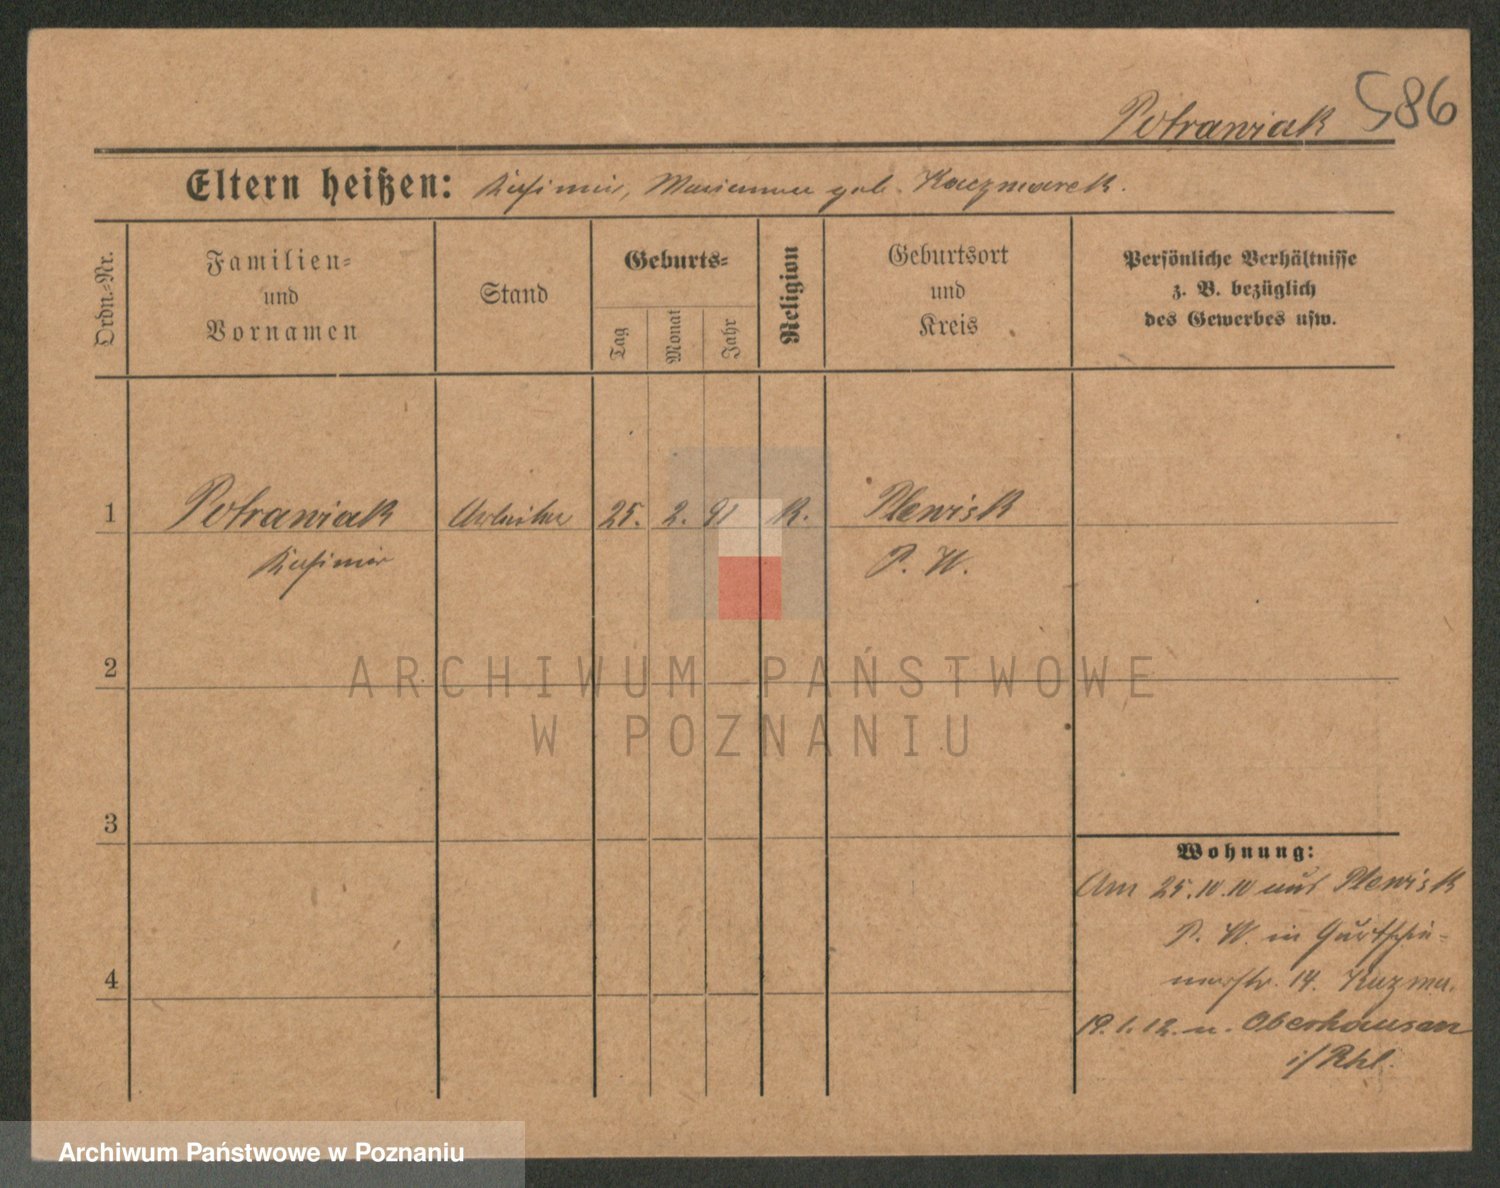 Potrawiak 586
Eltern heißen: Kasimir, Marianna geb. Kaczmarek.
Ordn.=Nr.
Familien=
und
Vornamen
Stand
Geburts=
Tag
Monat
Jahr
Religion
Geburtsort
und
Kreis
Persönliche Verhältnisse
z. B. bezüglich
des Gewerbes usw.
1 Potrawiak Arbeiter 25. 2. 91 K. Plewisk
Kasimir P. W.
2
3
4
Wohnung:
Am 25.10.10 aus Plewisk
P. W. in Gurtschin-
14.
19.1.12. n. Oberhausen
i/Rhl.
ARCHIWUM PAŃSTWOWE
W POZNANIU
Archiwum Państwowe w Poznaniu